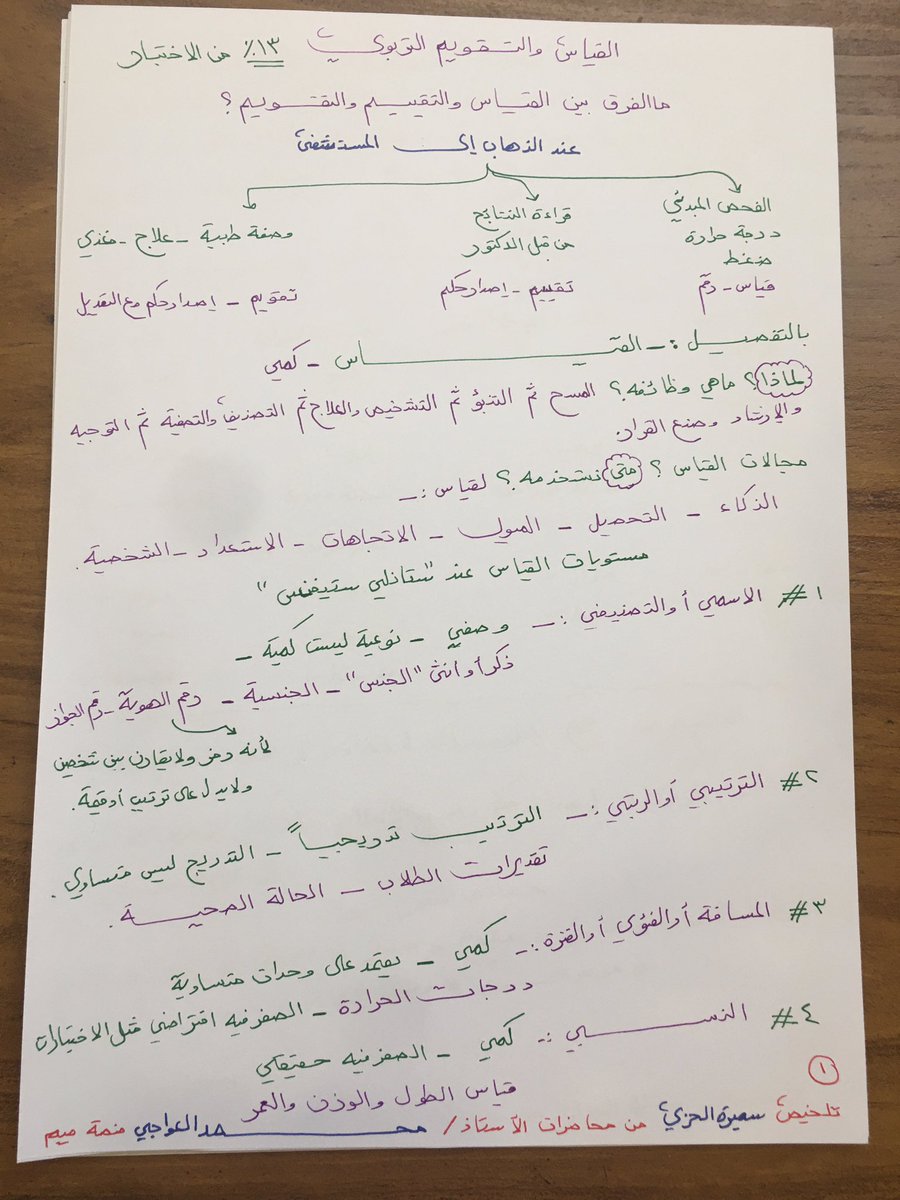 القياس والتقويم التربوي ١٣٪ من الاختبار
ما الفرق بين القياس والتقييم والتقويم؟
عند الذهاب إلى المستشفى
الفحص المبدئي
درجة حرارة
ضغط
قياس - رقم
قراءة النتائج
من قبل الدكتور
تقييم - إصدار حكم
وصفة طبية - علاج - مغذي
تقويم - إصدار حكم مع التعديل
بالتفصيل :- القياس - كمي
لماذا؟ ماهي وظائفه؟ المسح ثم التنبؤ ثم التشخيص والعلاج ثم التصنيف والتصفية ثم التوجيه
والإرشاد وصنع القرار.
مجالات القياس؟ متى نستخدمه؟ لقياس :-
الذكاء - التحصيل - الميول - الاتجاهات - الاستعداد - الشخصية.
مستويات القياس عند "ستانلي ستيفنس"
#١ الاسمي أو التصنيفي :- وصفي - نوعية ليست كمية -
ذكر أو أنثى "الجنس" - الجنسية - رقم الهوية - رقم الجواز
لأنه رمز ولا يقارن بين شخصين
ولا يدل على ترتيب أو قيمة.
#٢ الترتيبي أو الرتبي :- الترتيب تدريجياً - التدريج ليس متساوي.
تقديرات الطلاب - الحالة الصحية.
#٣ المسافة أو الفئوي أو الفترة :- كمي - يعتمد على وحدات متساوية
درجات الحرارة - الصفر فيه افتراضي مثل الاختبارات
#٤ النسبي :- كمي - الصفر فيه حقيقي
قياس الطول والوزن والعمر
١
تلخيص سميرة الحزي من محاضرات الأستاذ / محمد العواجي منصة ميم